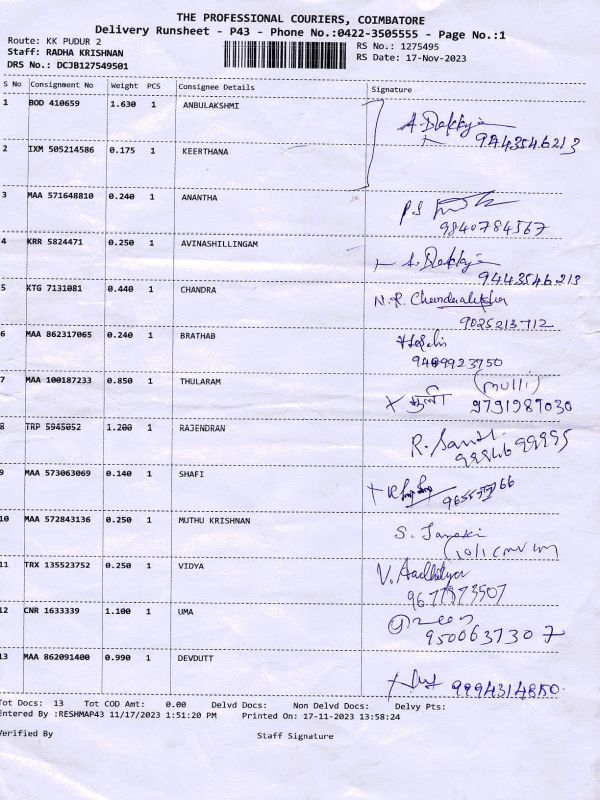 THE PROFESSIONAL COURIERS, COIMBATORE
Delivery Runsheet - P43 - Phone No.:0422-3505555 - Page No.:1
Route: KK PUDUR 2
RS No.: 1275495
Staff: RADHA KRISHNAN
RS Date: 17-Nov-2023
DRS No.: DCJB127549501
S No Consignment No Weight PCS Consignee Details Signature
1 BOD 410659 1.630 1 ANBULAKSHMI
9443546213
2 IXM 505214586 0.175 1 KEERTHANA
3 MAA 571648810 0.240 1 ANANTHA
9840784567
4 KRR 5824471 0.250 1 AVINASHILLINGAM
9443546213
5 KTG 7131081 0.440 1 CHANDRA N.R.
9025213712
6 MAA 862317065 0.240 1 BRATHAB
9409923750
7 MAA 100187233 0.850 1 THULARAM (mulli)
मुली 9791987030
8 TRP 5945052 1.200 1 RAJENDRAN R.
9 MAA 573063069 0.140 1 SHAFI
10 MAA 572843136 0.250 1 MUTHU KRISHNAN S. Janaki
11 TRX 135523752 0.250 1 VIDYA V. Aadhitya
12 CNR 1633339 1.100 1 UMA
9500637307
13 MAA 862091400 0.990 1 DEVDUTT
9994314850
Tot Docs: 13 Tot COD Amt: 0.00 Delvd Docs: Non Delvd Docs: Delvy Pts:
Entered By :RESHMAP43 11/17/2023 1:51:20 PM Printed On: 17-11-2023 13:58:24
Verified By Staff Signature